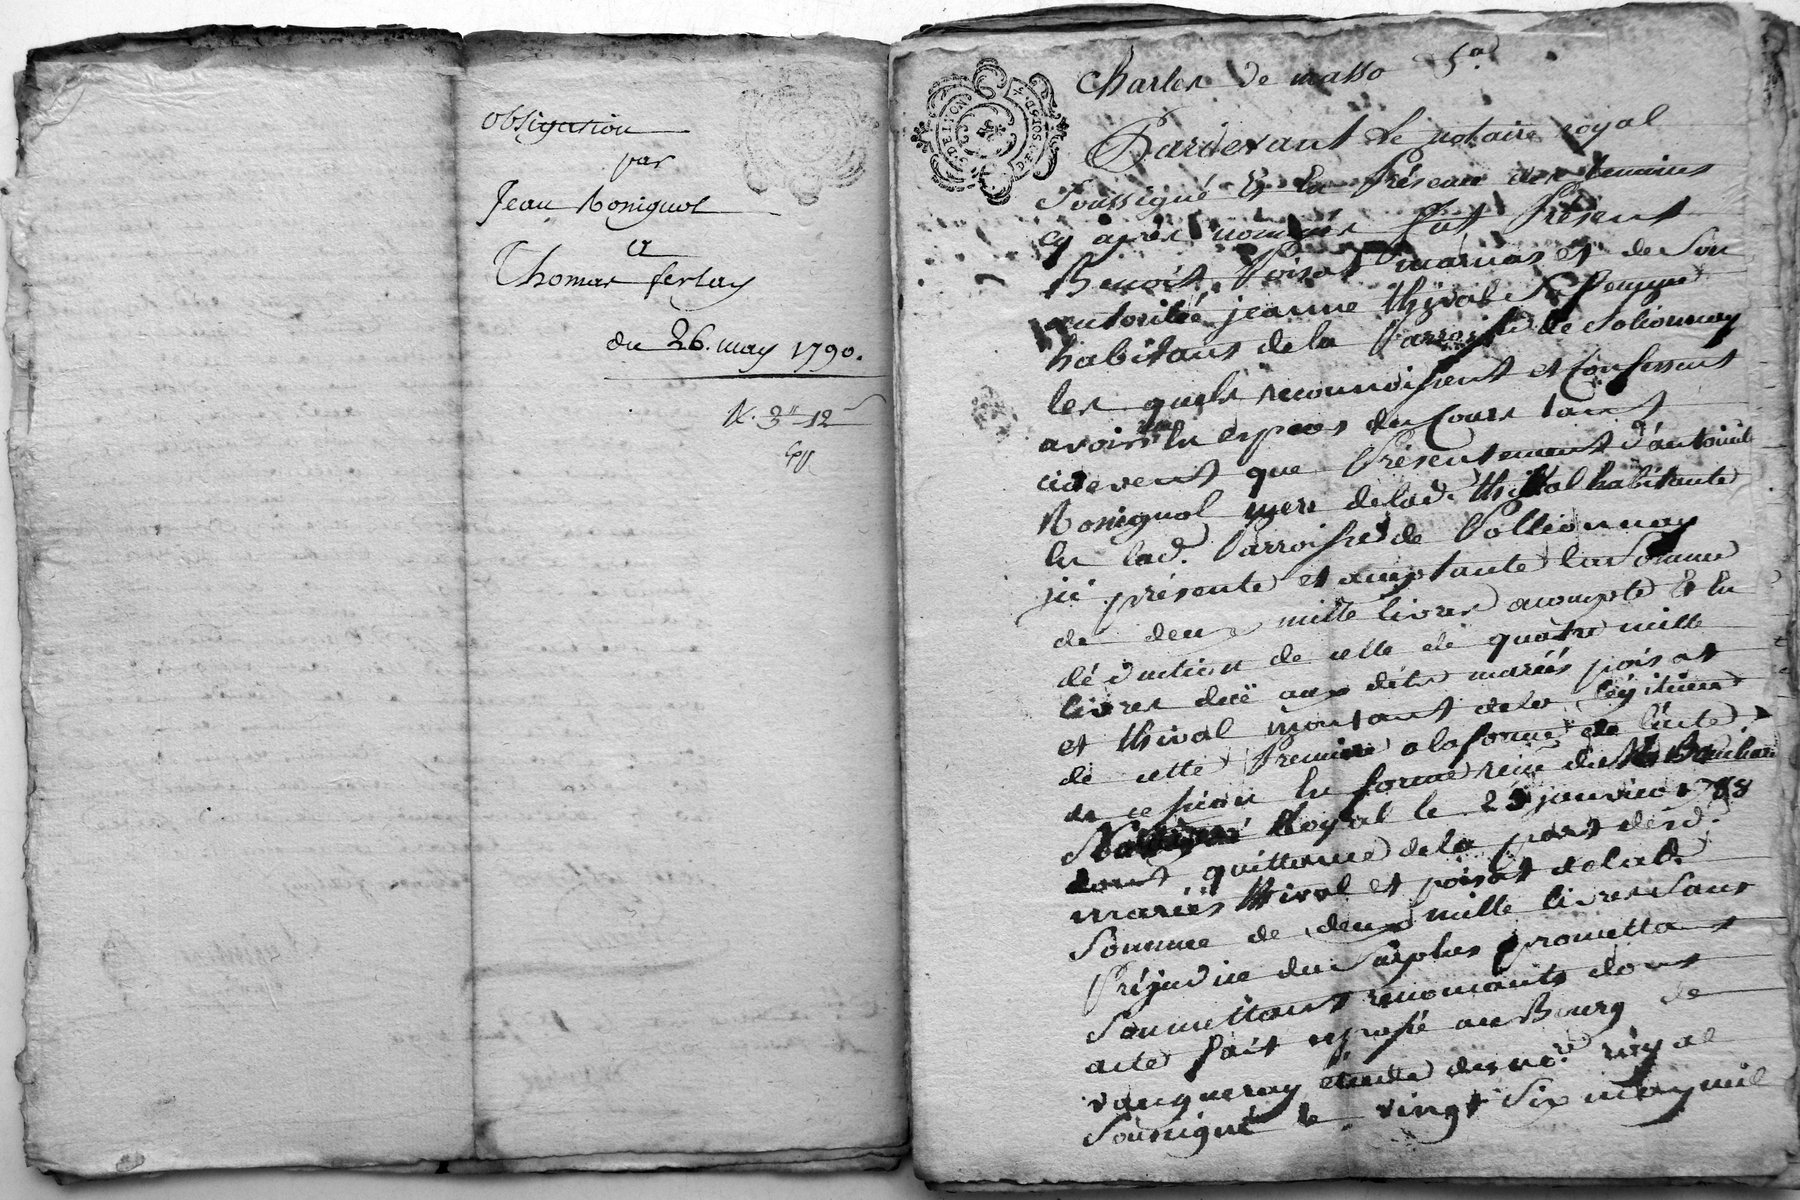 obligation
par
Jean Rosignol
a
Thomas ferlay
du 26. may 1790.
R. 3" 12
Charles de masso
Pardevant Le notaire royal
Soussigné Et En Présence des temoins
cy après nommés fut Présent
Benoit Poisat mariés et de Son
autorité jeanne thival Sa femme
habitans de la Parroisse de Polionnay
les quels reconnoissent et Confessent
avoir En especes du Cours tant
cidevent que Présentement d'antoinette
Rosignol mere de lad. thival habitante
En lad. Parroisse de Pollionnay
ici présente et acceptante la Somme
de deux mille livres acompte Et En
déduction de celle de quatre mille
livres duë aux dits mariés poisat
et thival montant de la légitime
de cette Premiere a la forme de l'acte
de cession En forme reçu du Me
Royal le 23 janvier 1788
dont quittance de la part desd.
mariés thival et poisat de lad.
Somme de deux mille livres Sans
Préjudice du Surplus promettant
Soumettant renonçants dont
acte fait et passé au Bourg de
vaugneray étude du no.re royal
Soussigné le vingt Six may mil